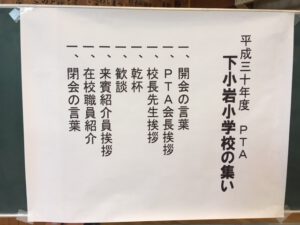 平成三十年度　ＰＴＡ
下小岩小学校の集い
一、開会の言葉
一、ＰＴＡ会長挨拶
一、校長先生挨拶
一、乾杯
一、歓談
一、来賓紹介員挨拶
一、在校職員紹介
一、閉会の言葉